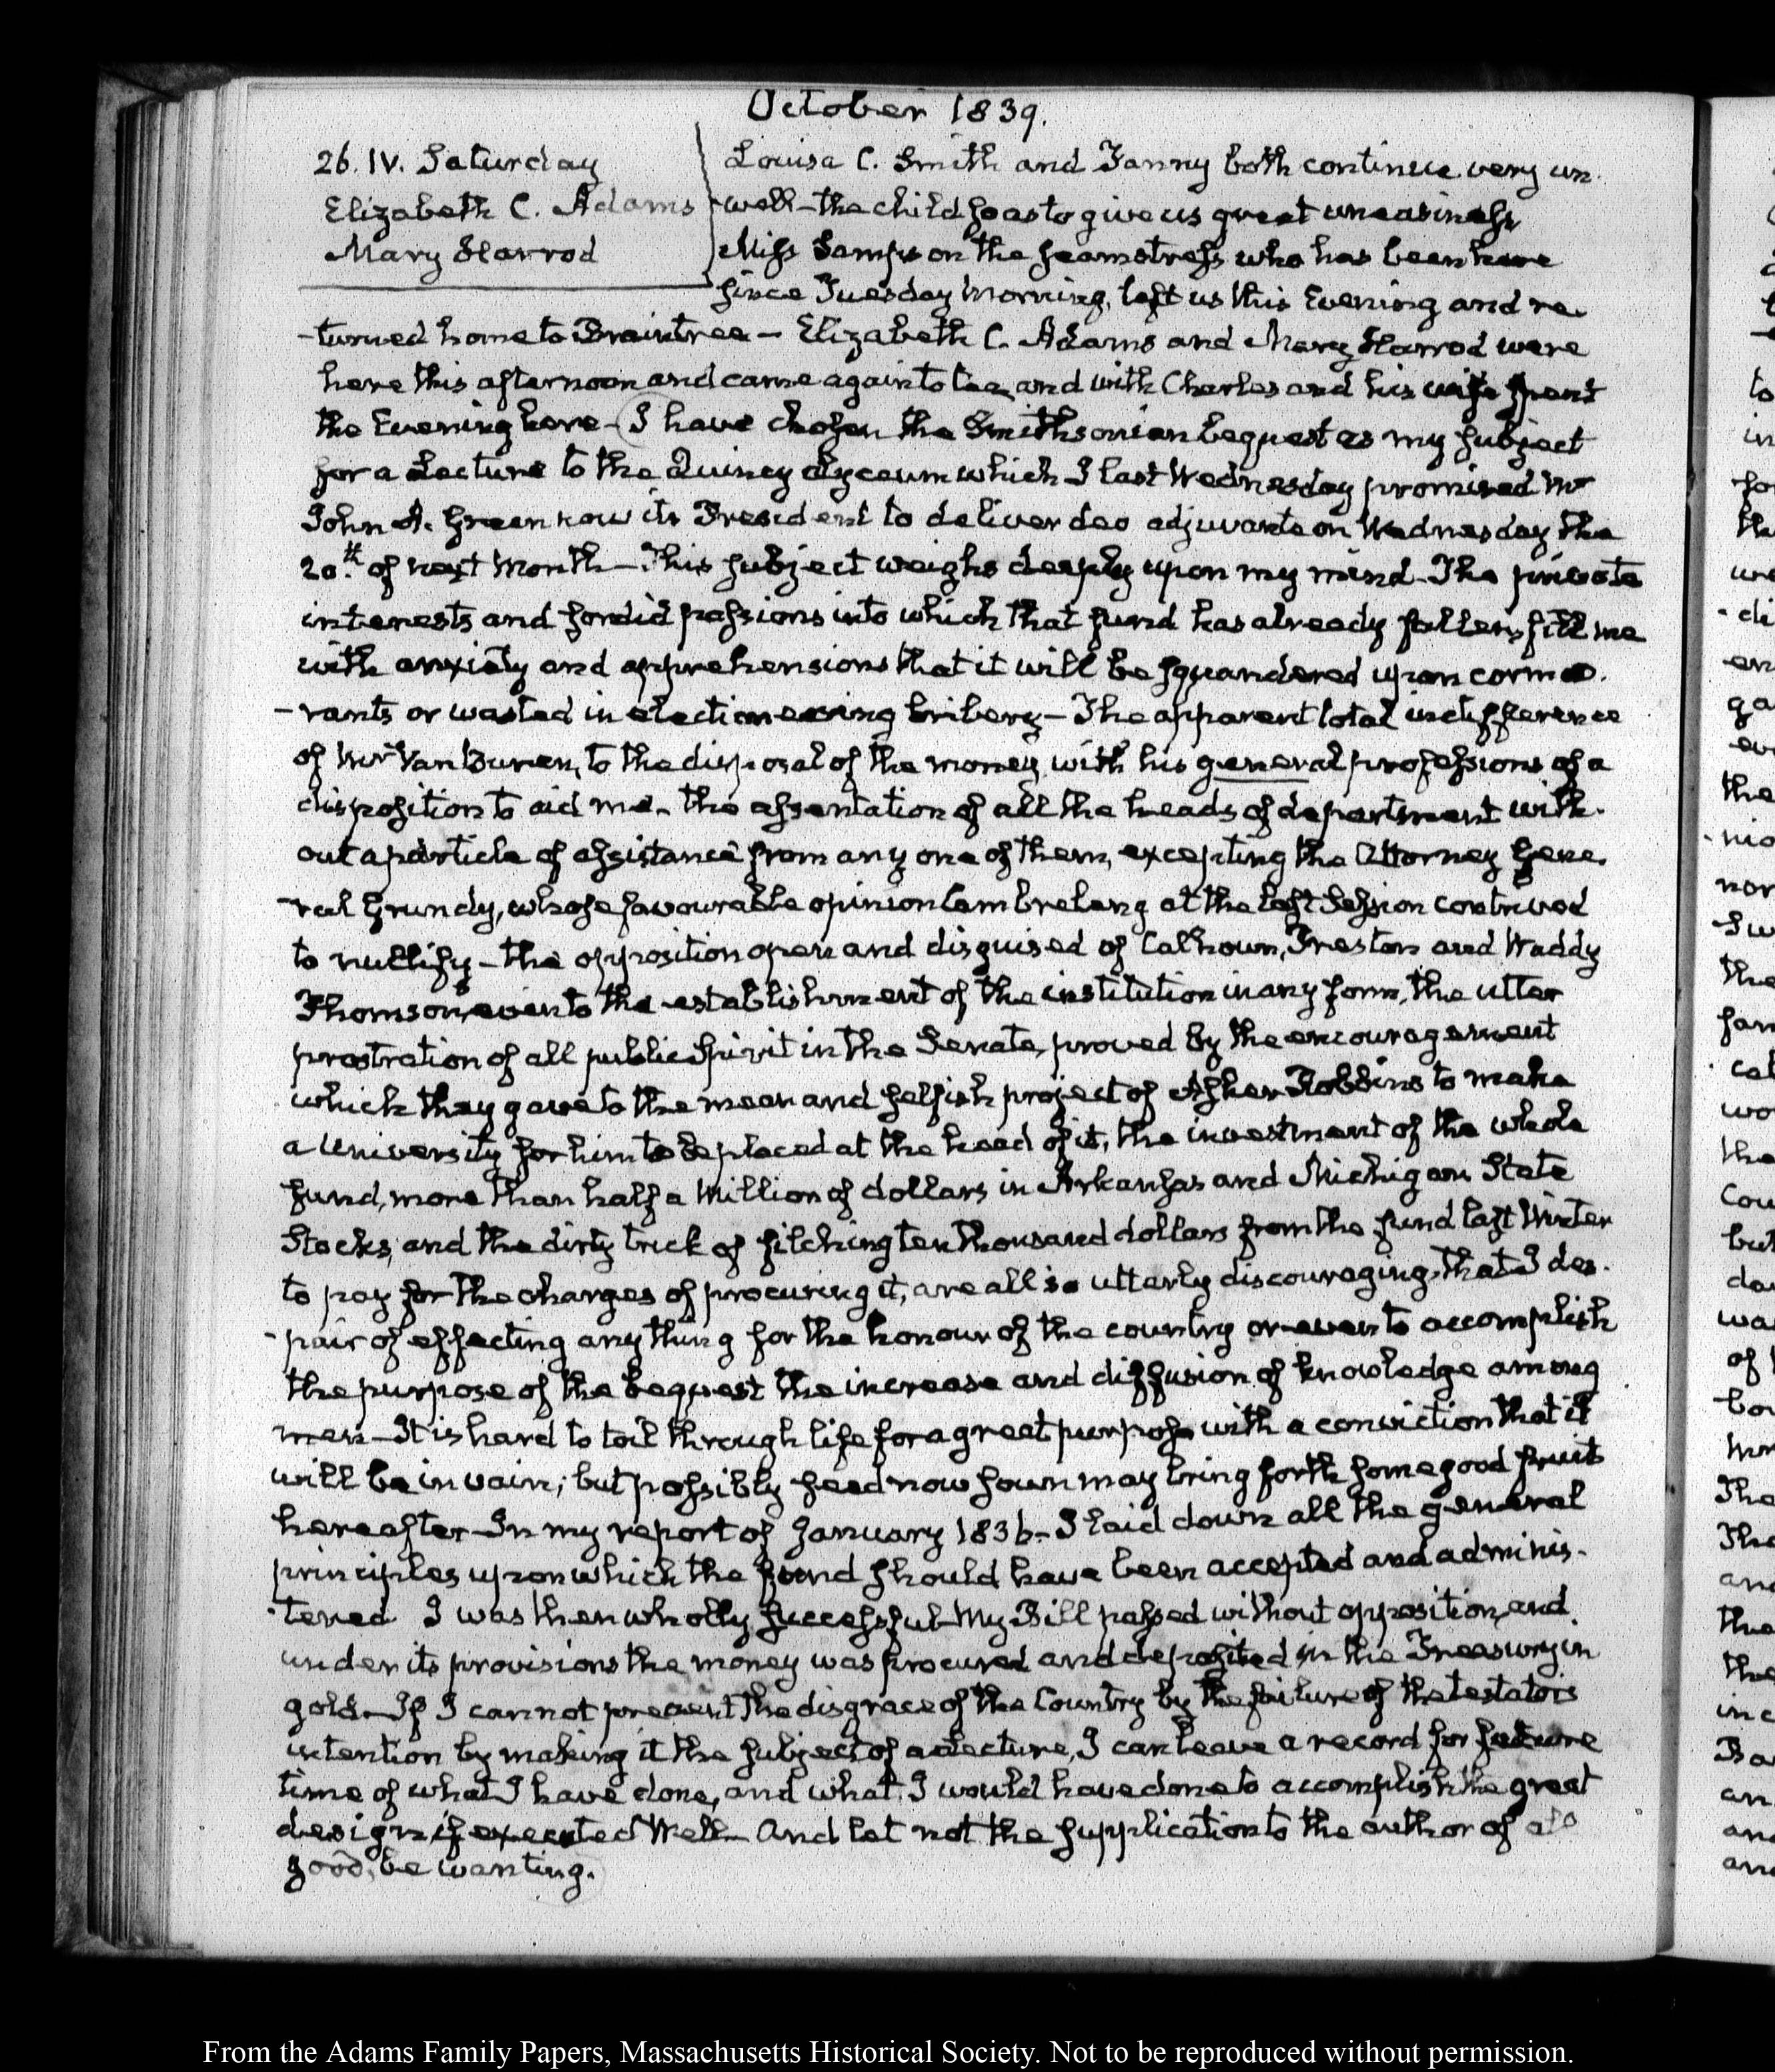 October 1839.
26. IV. Saturday
Elizabeth C. Adams
Mary Harrod
Louisa C. Smith and Fanny both continue very un-
well - the child so as to give us great uneasiness
Miss Sampson the seamstress who has been here
since Tuesday Morning, left us this Evening and re-
-turned home to Braintree - Elizabeth C. Adams and Mary Harrod were
here this afternoon and came again to tea, and with Charles and his wife spent
the Evening here - I have chosen the Smithsonian bequest as my subject
for a Lecture to the Quincy Lyceum which I last Wednesday promised Mr
John A. Green now its President to deliver deo adjuvante on Wednesday the
20.th of next Month - This subject weighs deeply upon my mind. The private
interests and sordid passions into which that fund has already fallen, fill me
with anxiety and apprehensions that it will be squandered upon cormo-
-rants or wasted in electioneering bribery - The apparent total indifference
of Mr Van Buren, to the disposal of the money, with his general professions of a
disposition to aid me - the assentation of all the heads of department with-
out a particle of assistance from any one of them, excepting the Attorney Gene-
-ral Grundy, whose favourable opinion Cambreleng at the last Session contrived
to nullify - the opposition open and disguised of Calhoun, Preston and Waddy
Thomson, even to the establishment of the institution in any form, the utter
prostration of all public Spirit in the Senate, proved by the encouragement
which they gave to the mean and selfish project of Asher Robbins to make
a University for him to be placed at the head of it, the investment of the whole
fund, more than half a Million of dollars in Arkansas and Michigan State
Stocks, and the dirty trick of filching ten thousand dollars from the fund last Winter
to pay for the charges of procuring it, are all so utterly discouraging, that I des-
-pair of effecting any thing for the honour of the country or even to accomplish
the purpose of the bequest the increase and diffusion of knowledge among
men - It is hard to toil through life for a great purpose with a conviction that it
will be in vain; but possibly seed now sown may bring forth some good fruit
hereafter - In my report of January 1836 - I laid down all the general
principles upon which the fund should have been accepted and adminis-
-tered I was then wholly successful - My Bill passed without opposition, and
under its provisions the money was procured and deposited in the Treasury in
gold - If I cannot prevent the disgrace of the Country by the failure of the testators
intention by making it the subject of a Lecture, I can leave a record for future
time of what I have done, and what I would have done to accomplish the great
design if executed Well - And let not the supplication to the author of all
good, be wanting.
From the Adams Family Papers, Massachusetts Historical Society. Not to be reproduced without permission.